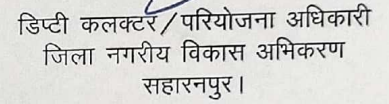 डिप्टी कलक्टर/परियोजना अधिकारी
जिला नगरीय विकास अभिकरण
सहारनपुर।